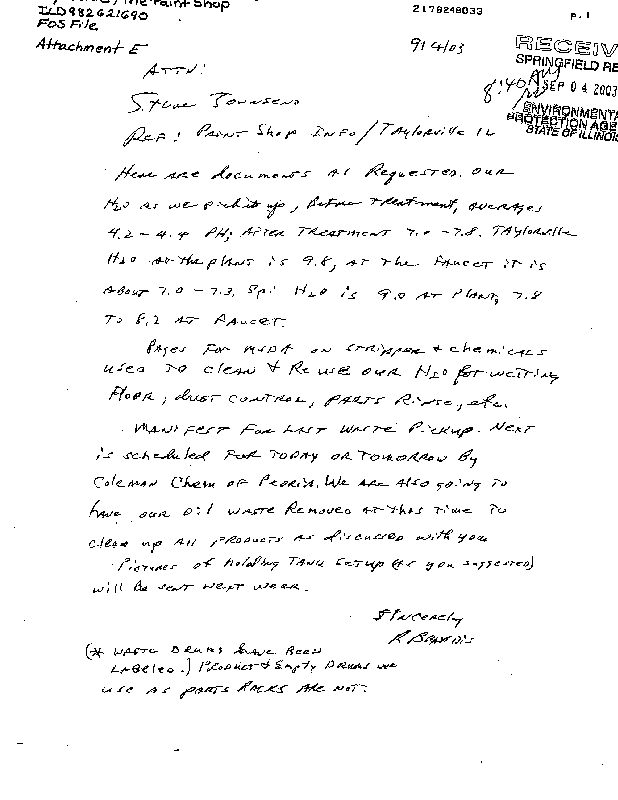 The Paint Shop
ILD982621690
FOS File
Attachment E
2178248033
p.1
9/4/03
RECEIV
SPRINGFIELD RE
8:40 AM
SEP 04 2003
ENVIRONMENTA
PROTECTION AGE
STATE OF ILLINOIS
ATTN:
Steve Townsend
REF: Paint Shop Info/Taylorville IL
Here are documents as Requested. Our
H2O as we pick it up, Before treatment, averages
4.2-4.4 PH; After Treatment 7.0-7.8. Taylorville
H2O at the plant is 9.8, at the Faucet it is
About 7.0-7.3. Sp: H2O is 9.0 at Plant, 7.8
to 8.2 at Faucet.
Pages for MSDA on stripper & chemicals
used to clean & Re use our H2O for wetting
Floor, dust control, parts Rinse, etc.
Manifest for last waste Pickup. Next
is scheduled for today or tomorrow By
Coleman Chem of Peoria. We are also going to
have our oil waste Removed at this time to
clean up all products as discussed with you
Pictures of holding tank setup (as you suggested)
will be sent next week.
Sincerely
R Brandis
(* Waste Drums have Been
Labeled.) Product & Empty Drums we
use as parts Racks are not.